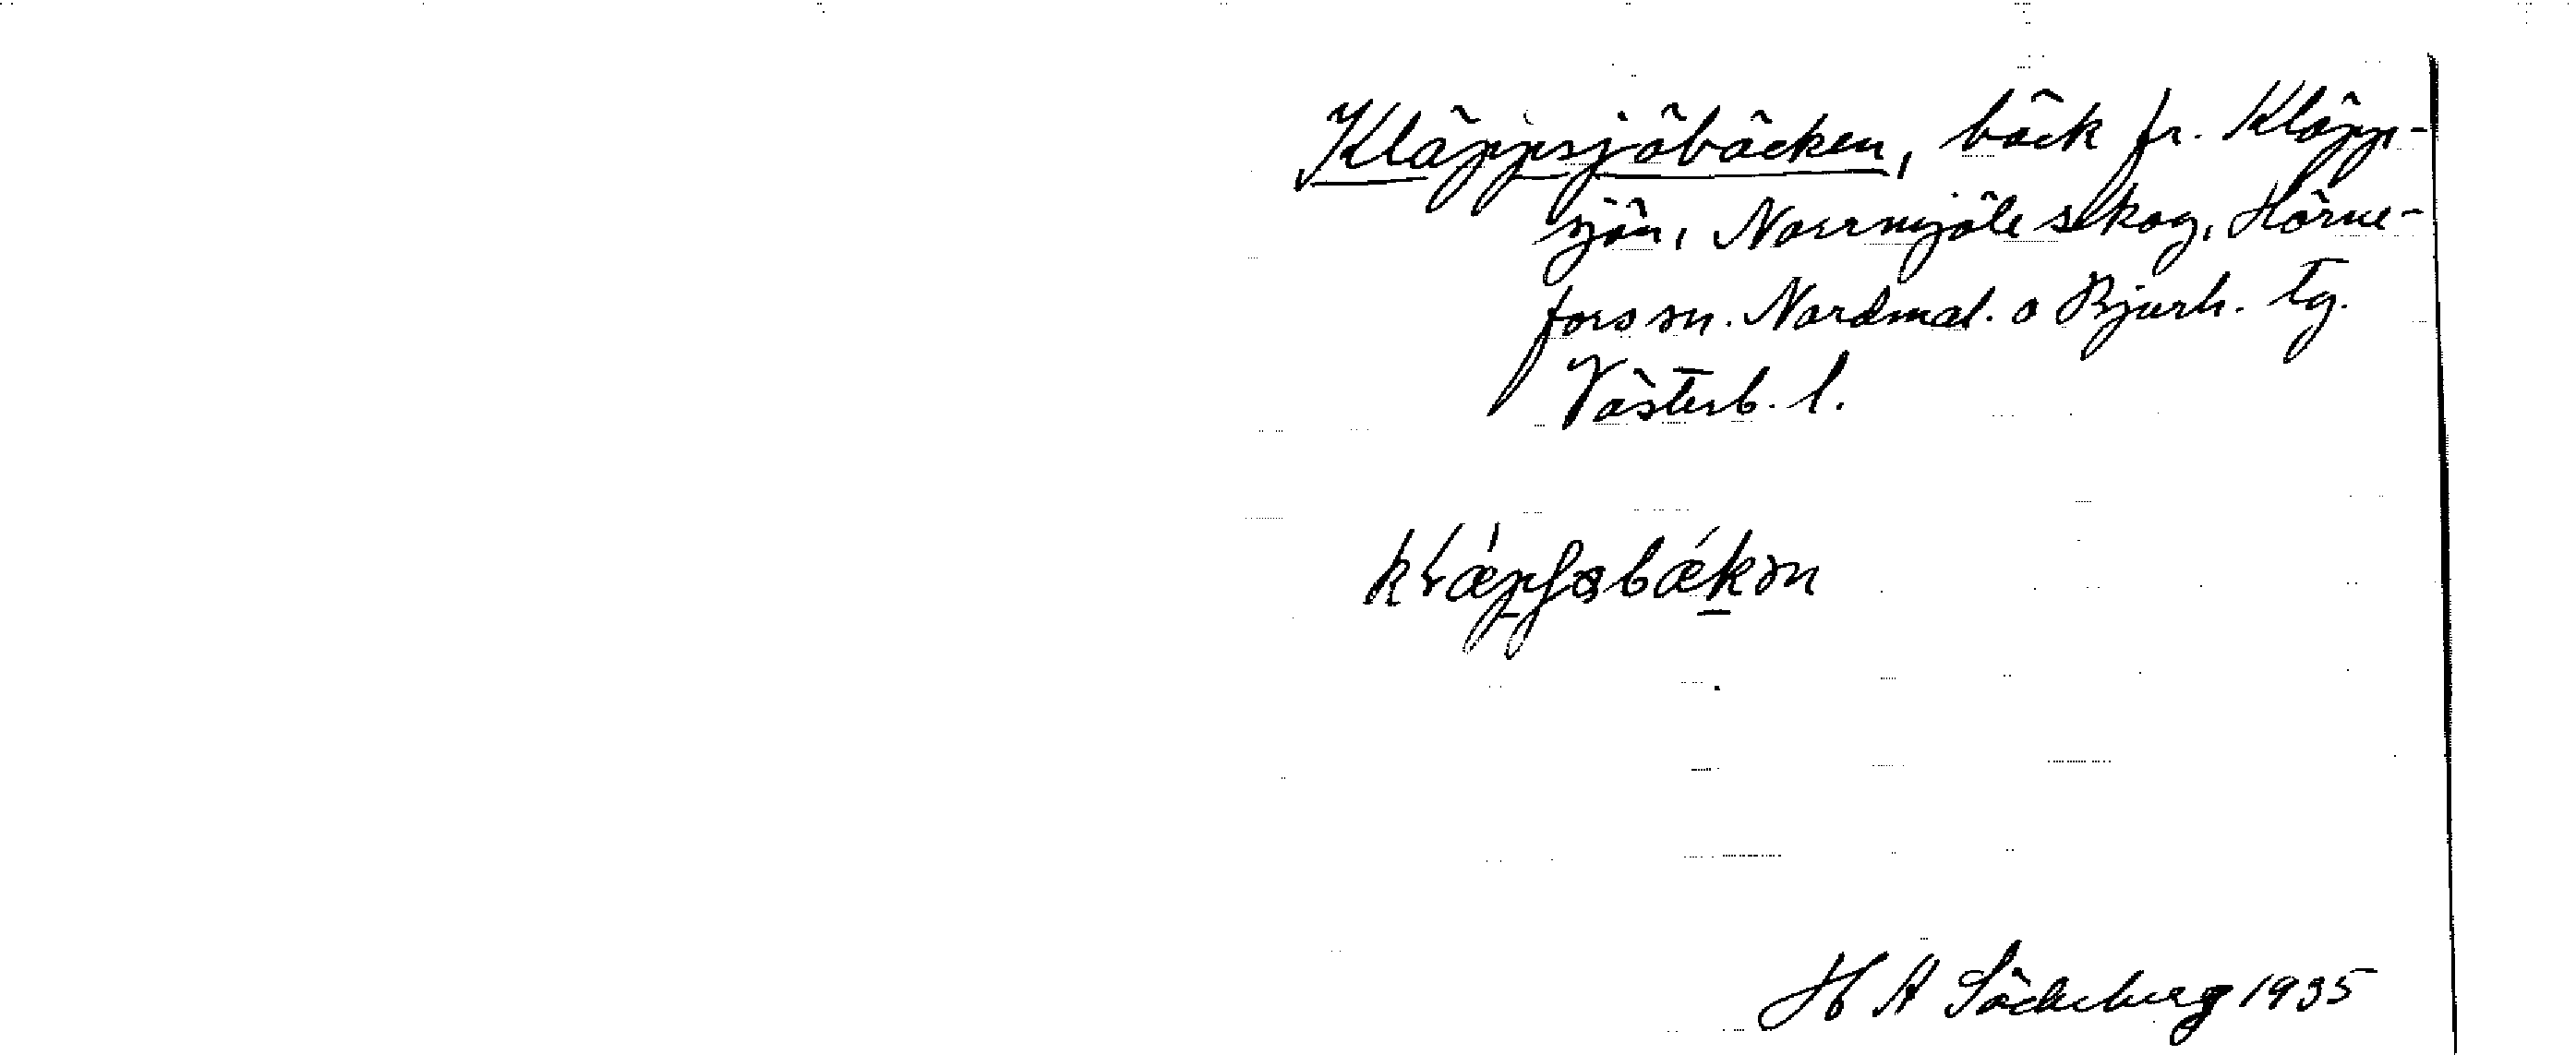 Kläppsjöbäcken, bäck fr. Kläpp-
sjön, Norrmjöle skog, Hörne-
fors sn. Nordmal. o Bjurh. tg.
Västerb. l.
H A Söderberg 1935